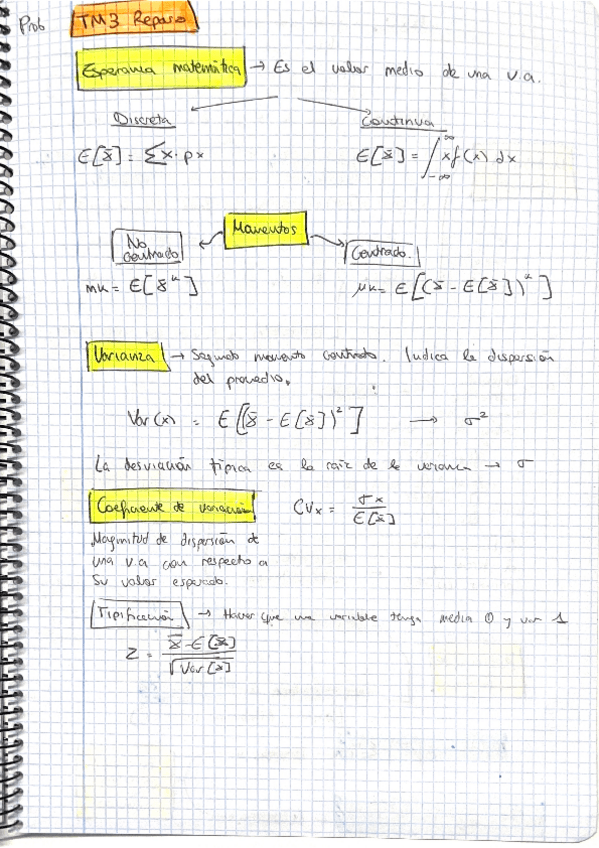 Prob
TM3 Repaso
Esperanza matemática → Es el valor medio de una v.a.
Discreta
Continua
E[x̄] = Σx · px
E[x̄] = ∫_{-∞}^{∞} x f(x) dx
Momentos
No centrado
Centrado.
mk = E[x̄^k]
μk = E[(x̄ - E[x̄])^k]
Varianza → Segundo momento centrado. Indica la dispersión
del promedio.
Var(x) = E[(x̄ - E[x̄])²] → σ²
La desviación típica es la raíz de la varianza → σ
Coeficiente de variación
CVx = σx / E[x̄]
Magnitud de dispersión de
una v.a con respecto a
su valor esperado.
Tipificación → Hacer que una variable tenga media 0 y var 1
Z = (x̄ - E[x̄]) / √Var[x̄]